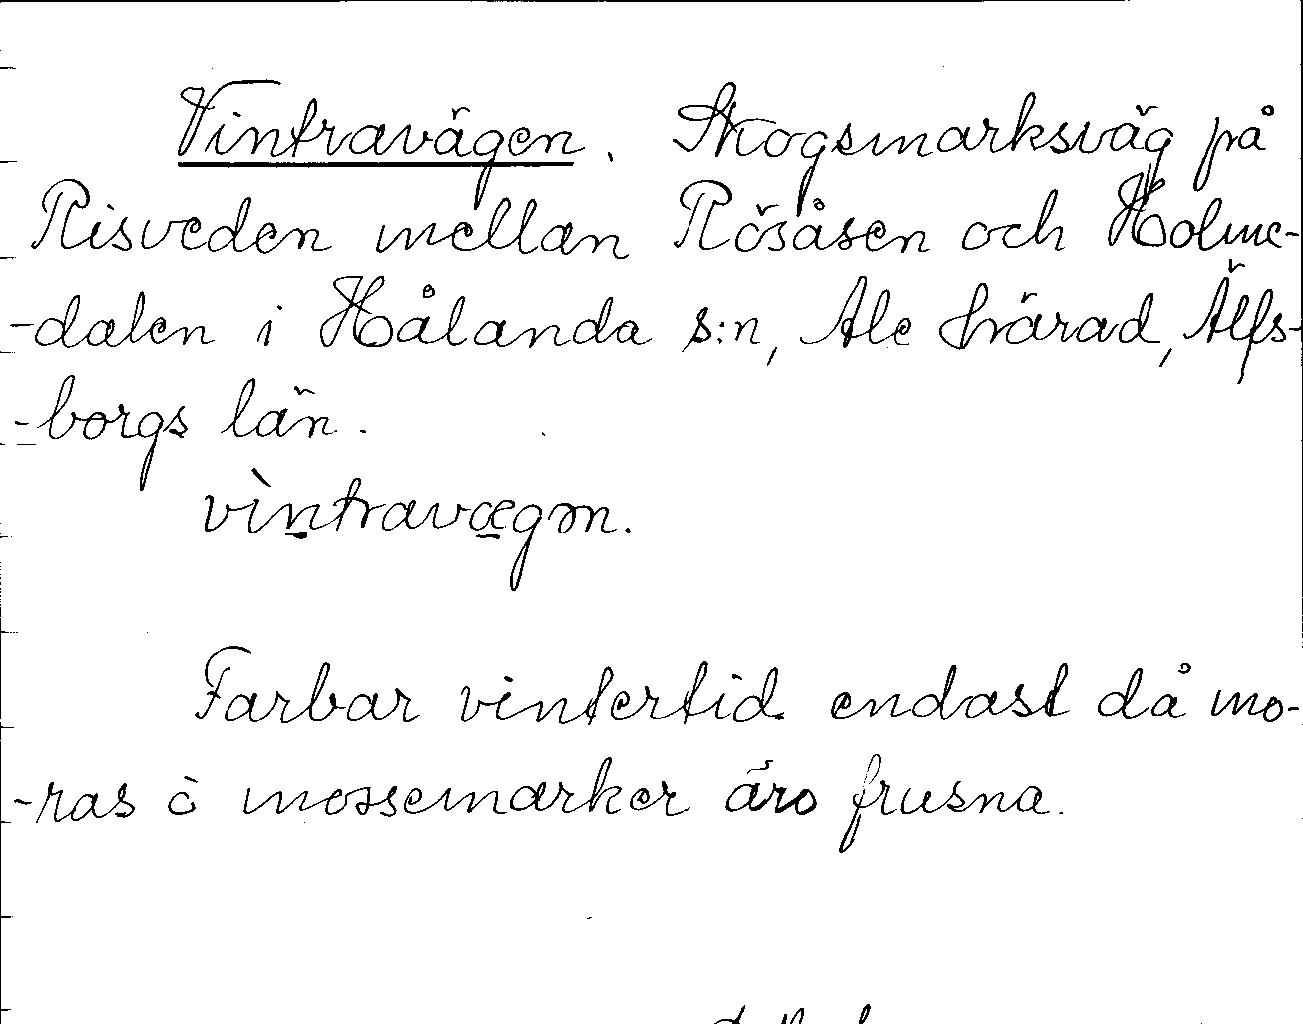 Vintravägen. Skogsmarksväg på
Risveden mellan Rösåsen och Holme-
-dalen i Hålanda s:n, Ale härad, Älfs-
-borgs län.
vìntravægən.
Farbar vintertid endast då mo-
-ras ò mossemarker äro frusna.